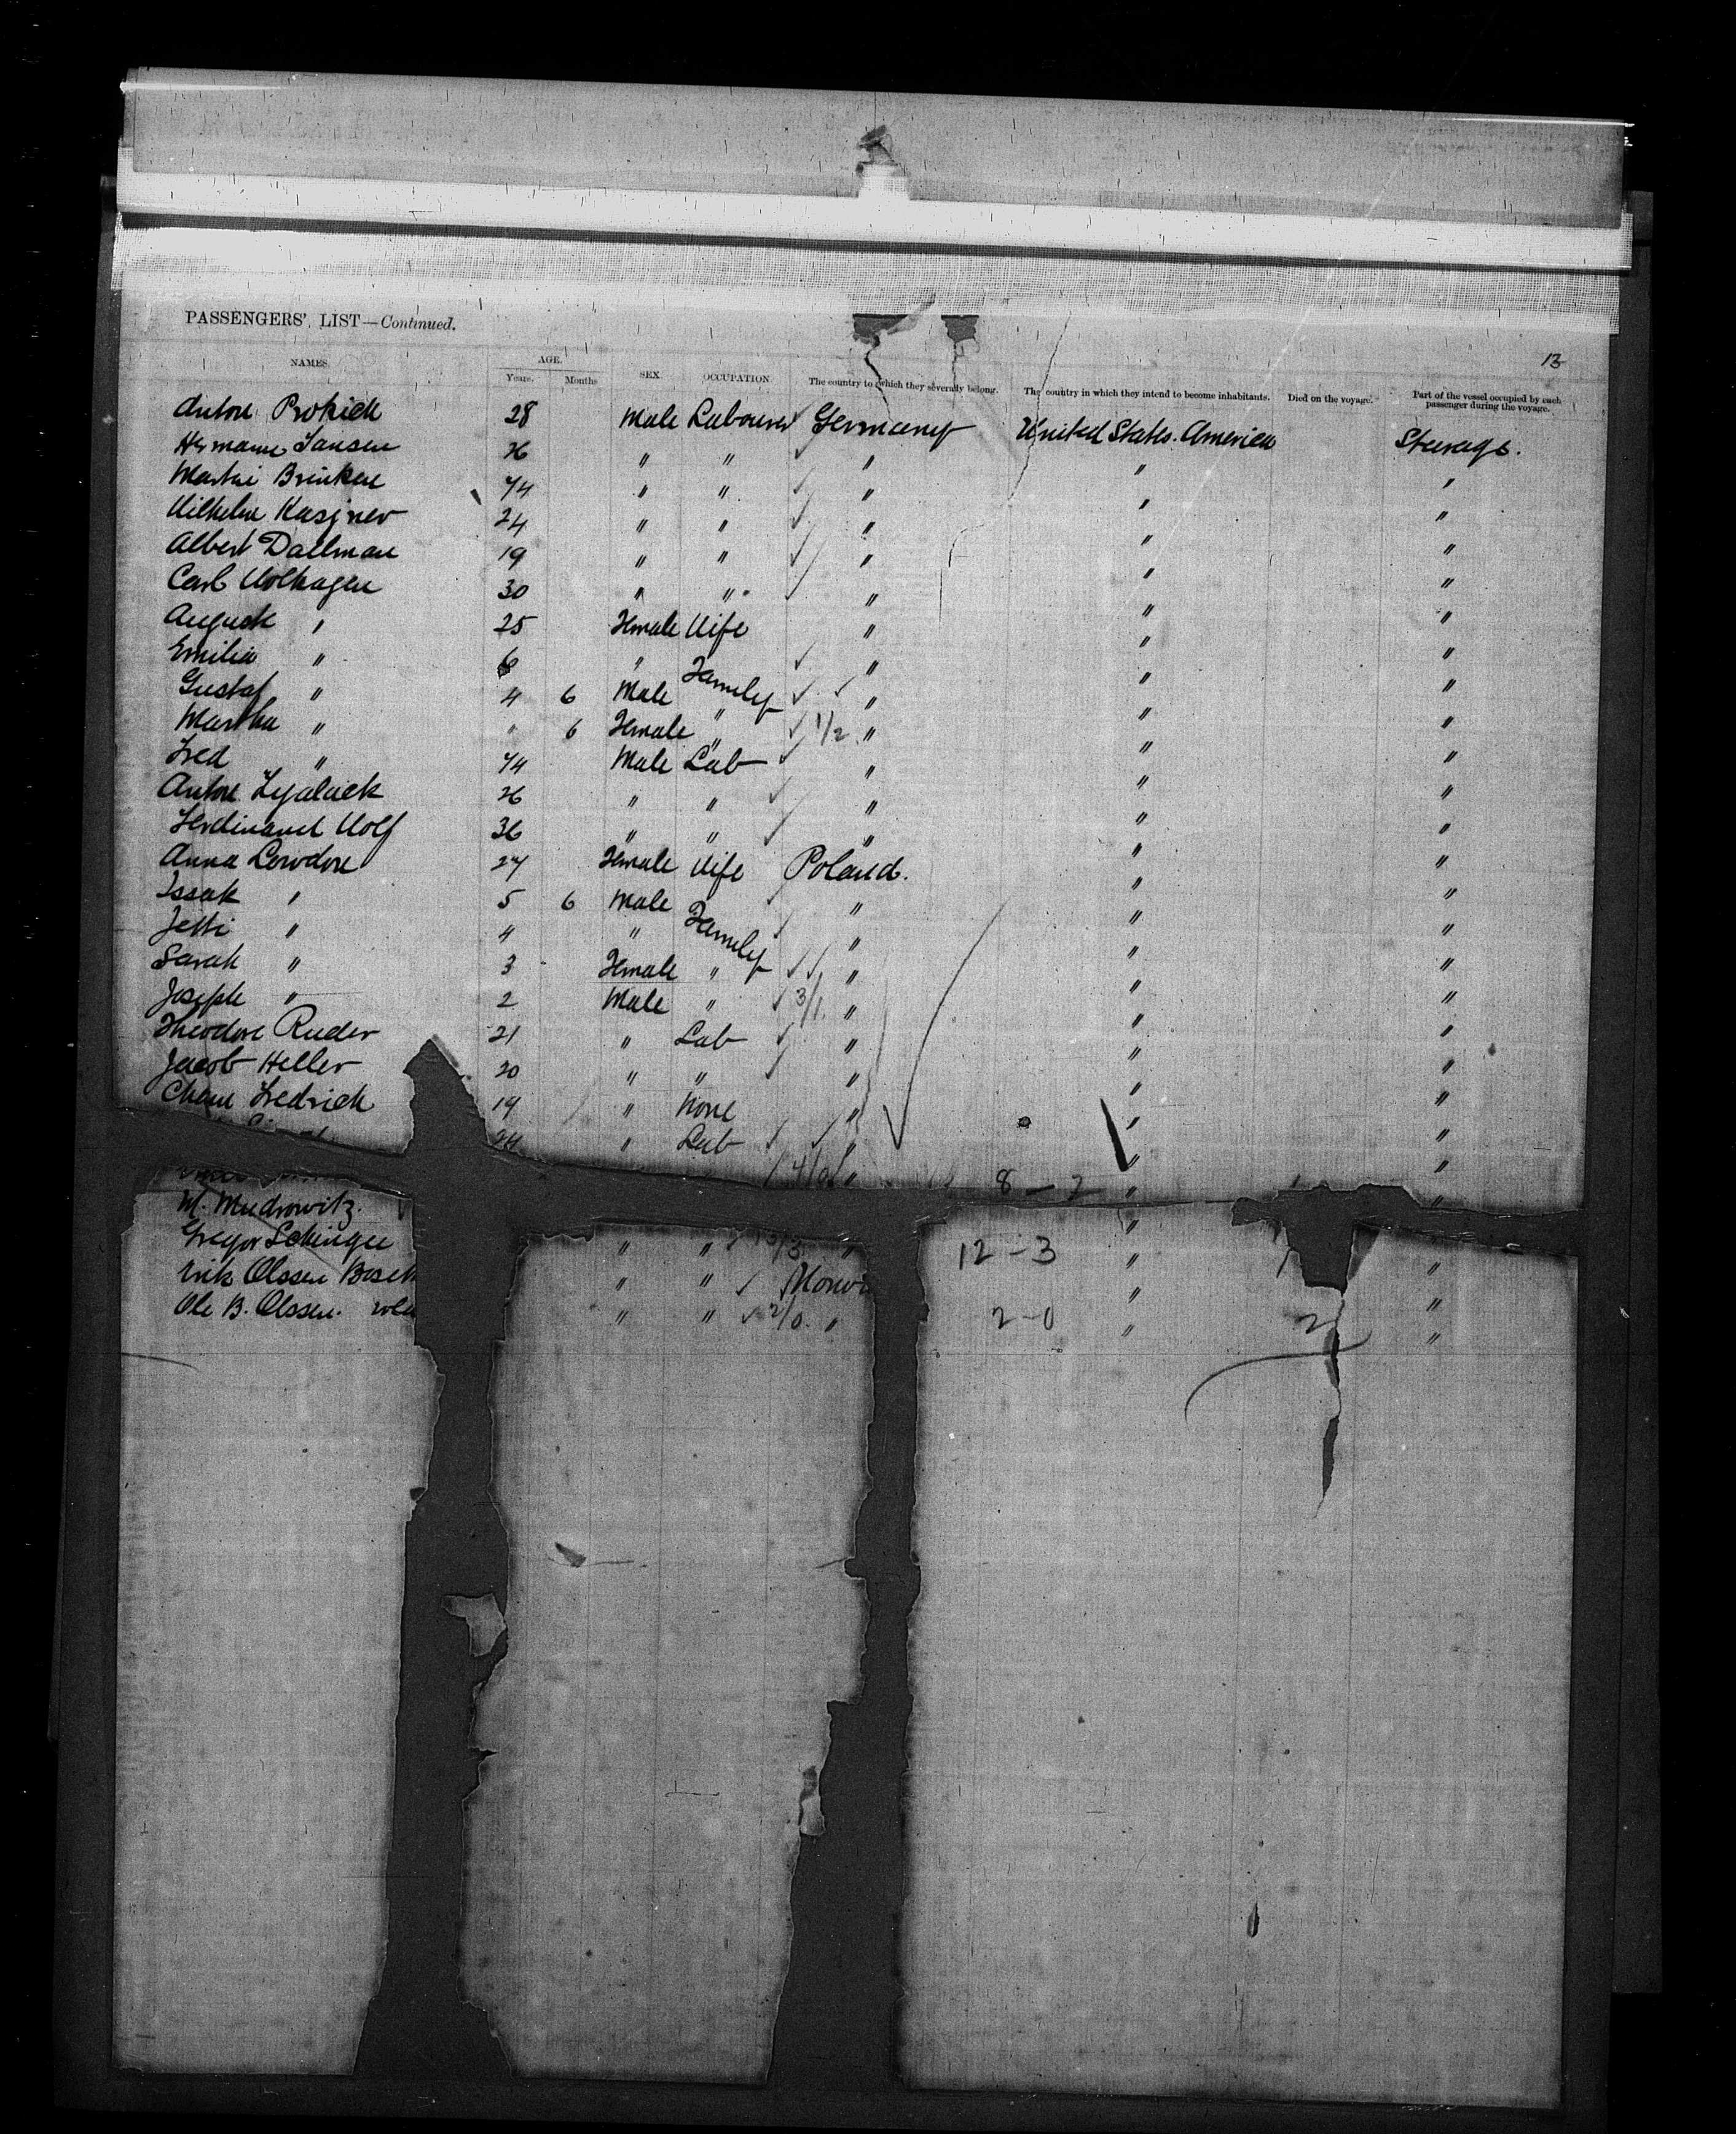 PASSENGERS' LIST—Continued.
13
NAMES. AGE. Years. Months SEX OCCUPATION The country to which they severally belong. The country in which they intend to become inhabitants. Died on the voyage. Part of the vessel occupied by each passenger during the voyage.
Anton Prokick 28 Male Labourer Germany United States. America Steerage.
Hermann Jansen 26 " " " " "
Brinken 44 " " " " "
Wilhelm 24 " " " " "
Albert Dallman 19 " " " " "
Carl Wolhagen 30 " " " " "
August " 25 Female Wife " " "
Emilia " 6 " Family " " "
Gustaf " 4 6 Male " " " "
Martha " " 6 Female " 1/2 " " "
Fred " 44 Male Lab " " "
Anton 26 " " " " "
Ferdinand Wolf 36 " " " " "
Anna Lowdon 24 Female Wife Poland. " "
Issak " 5 6 Male Family " " "
Jetti " 4 " " " "
Sarah " 3 Female " " " "
Joseph " 2 Male " 3/1 " " "
Theodore Ruder 21 " Lab " " "
Jacob Heller 20 " " " " "
Fredrick 19 " None " " "
24 " Lab " " "
" 8-2 " "
M. Mudrowitz. " "
Gregor " " 3/3 " 12-3 " "
Erik Olssen " " " "
Ole B. Olssen. " " 2/0. " 2-0 " 2 "